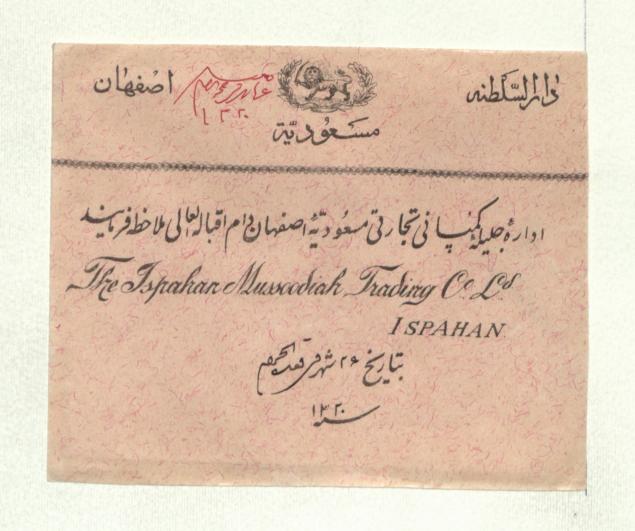 دارالسّلطنه اصفهان
۱۳۲۰
مسعُودیّة
ادارهٔ جلیلهٔ کمپانی تجارتی مسعُودیّهٔ اصفهان دام اقباله العالی ملاحظه فرمایند
The Ispahan Mussoodiah Trading Co. Ld.
ISPAHAN.
بتاریخ ۲۶ شهر ذی قعدة الحرام
سنه ۱۳۲۰